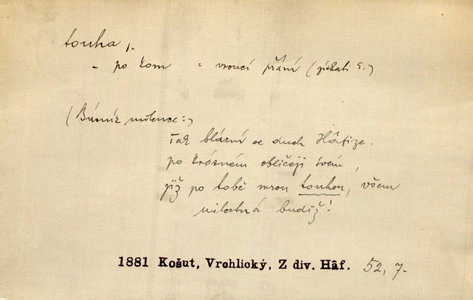 touha, f.
- po kom = vroucí přání (získati e.)
(Básník milence:)
Tak blázní se duch Hâfize
po krásném obličeji tvém,
již po tobě mrou touhou, všem
milostná budiž!
1881 Košut, Vrchlický, Z div. Hâf. 52, 7.